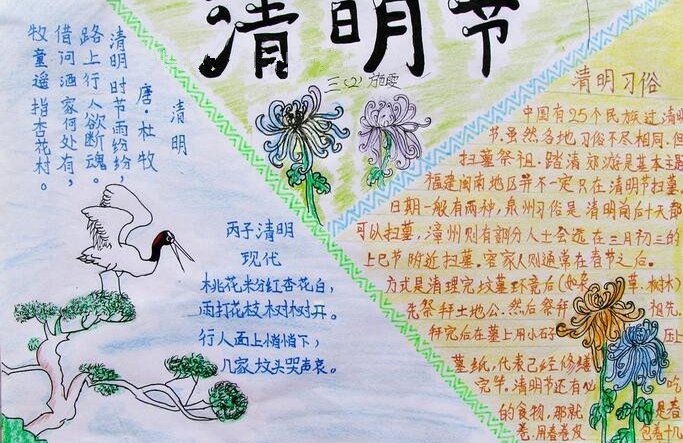 清明节
三(2) 施雯
清明
唐·杜牧
清明时节雨纷纷,
路上行人欲断魂。
借问酒家何处有,
牧童遥指杏花村。
丙子清明
现代
桃花粉红杏花白,
雨打花枝树树开。
行人面上悄悄下,
几家坟头哭声哀。
清明习俗
中国有25个民族过清明
节,虽然各地习俗不尽相同,但
扫墓祭祖、踏清郊游是基本主题
福建闽南地区并不一定只在清明节扫墓,
日期一般有两种,泉州习俗是清明前后十天都
可以扫墓,漳州则有部分人士会选在三月初三的
上巳节附近扫墓。客家人则通常在春节之后。
方式是清理完坟墓环境后(如来 草、树木)
先祭拜土地公,然后祭拜 祖先,
拜完后在墓上用小石子 压上
墓纸,代表己经修缮
完毕。清明节还有 吃
的食物,那就 是春
卷,用春卷皮 包春卷